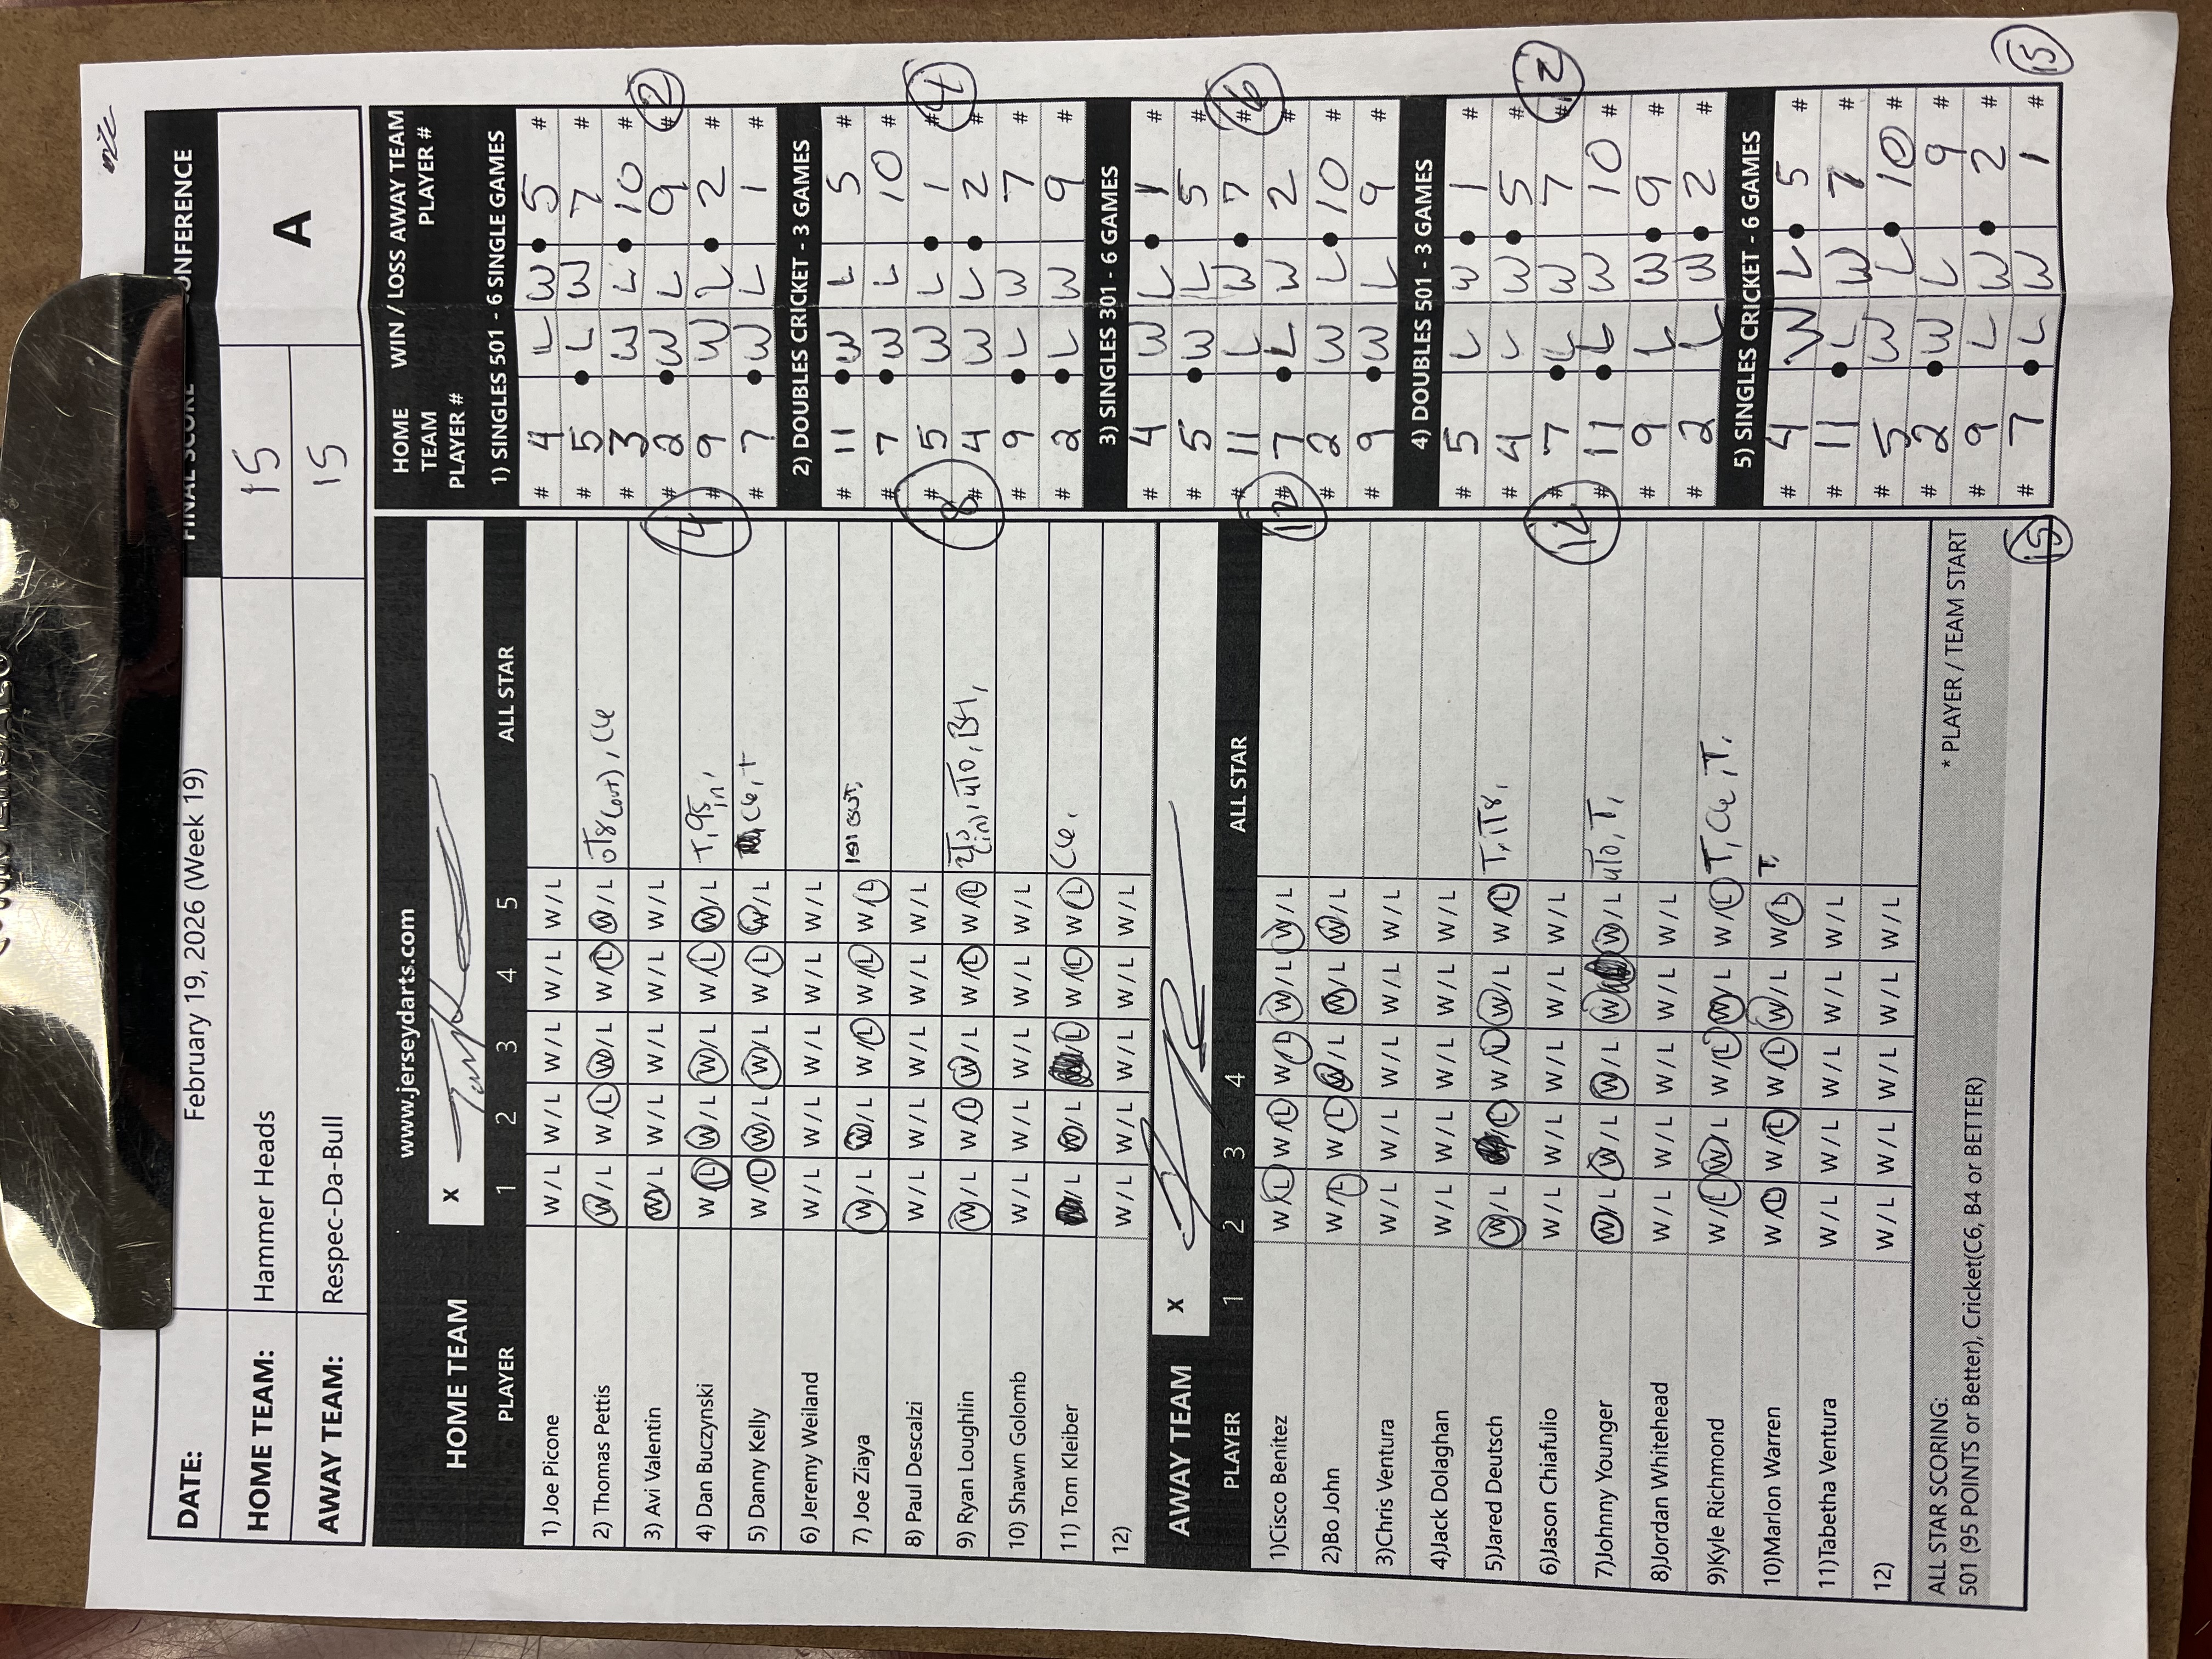 FINAL SCORE CONFERENCE
DATE: February 19, 2026 (Week 19)
HOME TEAM: Hammer Heads 15 A
AWAY TEAM: Respec-Da-Bull 15
www.jerseydarts.com
HOME TEAM X
PLAYER 1 2 3 4 5 ALL STAR
1) Joe Picone W / L W / L W / L W / L W / L
2) Thomas Pettis W / L W / L W / L W / L W / L
3) Avi Valentin W / L W / L W / L W / L W / L
4) Dan Buczynski W / L W / L W / L W / L W / L T, 95 in,
5) Danny Kelly W / L W / L W / L W / L W / L C6, T
6) Jeremy Weiland W / L W / L W / L W / L W / L
7) Joe Ziaya W / L W / L W / L W / L W / L 151 OUT,
8) Paul Descalzi W / L W / L W / L W / L W / L
9) Ryan Loughlin W / L W / L W / L W / L W / L
10) Shawn Golomb W / L W / L W / L W / L W / L
11) Tom Kleiber W / L W / L W / L W / L C6,
12) W / L W / L W / L W / L W / L
AWAY TEAM X
PLAYER 1 2 3 4 ALL STAR
1)Cisco Benitez W / L W / L W / L W / L W / L
2)Bo John W / L W / L W / L W / L W / L
3)Chris Ventura W / L W / L W / L W / L W / L
4)Jack Dolaghan W / L W / L W / L W / L W / L
5)Jared Deutsch W / L L W / L W / L W / L T,
6)Jason Chiafulio W / L W / L W / L W / L W / L
7)Johnny Younger W / L W / L W / L W W / L T,
8)Jordan Whitehead W / L W / L W / L W / L W / L
9)Kyle Richmond W / L W / L W / L W / L W / L T, C6, T,
10)Marlon Warren W / L W / L W / L W / L W / L T,
11)Tabetha Ventura W / L W / L W / L W / L W / L
12) W / L W / L W / L W / L W / L
ALL STAR SCORING:
501 (95 POINTS or Better), Cricket(C6, B4 or BETTER)
* PLAYER / TEAM START
HOME TEAM PLAYER # WIN / LOSS AWAY TEAM PLAYER #
1) SINGLES 501 - 6 SINGLE GAMES
# 4 L W 5 #
# 5 L W 7 #
# 3 W L 10 #
# 2 W L 9 #
# 9 W L 2 #
# 7 W L 1 #
4 2
2) DOUBLES CRICKET - 3 GAMES
# 11 W L 5 #
# 7 W L 10 #
# 5 W L 1 #
# 4 W L 2 #
# 9 L W 7 #
# 2 L W 9 #
8 4
3) SINGLES 301 - 6 GAMES
# 4 W L 1 #
# 5 W L 5 #
# 11 L W 7 #
# 7 L W 2 #
# 2 W L 10 #
# 9 W L 9 #
12 6
4) DOUBLES 501 - 3 GAMES
# 5 L W 1 #
# 4 L W 5 #
# 7 L W 7 #
# 11 L W 10 #
# 9 L W 9 #
# 2 L W 2 #
12 12
5) SINGLES CRICKET - 6 GAMES
# 4 W L 5 #
# 11 L W 7 #
# 5 W L 10 #
# 2 W L 9 #
# 9 L W 2 #
# 7 L W 1 #
15 15